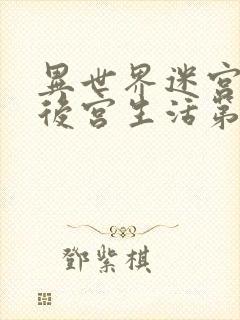 異世界迷宮
後宮生活第
鄧紫棋